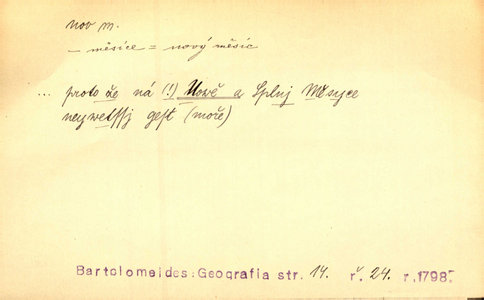 nov m.
– měsíce = nový měsíc
... proto že ná (!) Nowě a Splnj Měsyce
neywětssj gest (moře)
Bartolomeides: Geografia str. 14. ř. 24. r. 1798.